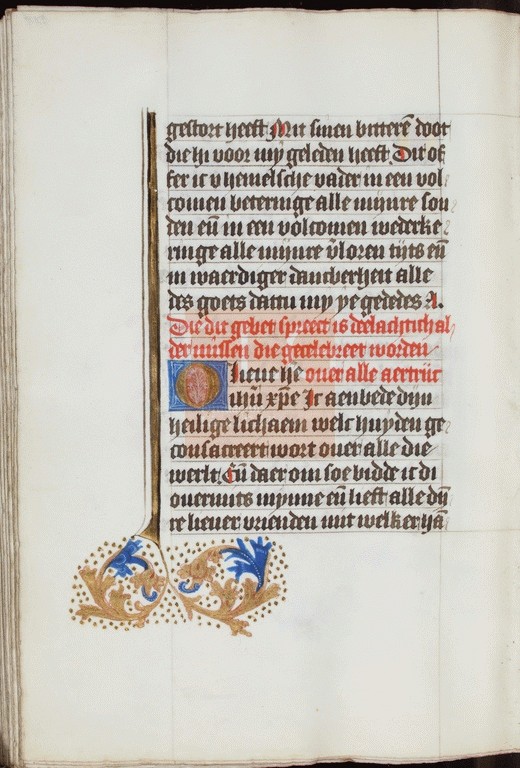 gestort heeft Mit sinen bitterē doot
die hi voor my geleden heeft Dit of
fer ic v hemelsche vader in een vol
comen beteringe alle mijnre son
den eñ in een volcomen wederke
ringe alle mijnre v̄loren tijts eñ
in waerdiger dancberheit alle
des goets dattu my ye gededes A.
Die dit gebet spreect is deelachtich al
der missen die gecelebreert worden
O lieue he ouer alle aertrijc
ihū xp̄e Ic aenbede dijn
heilige lichaem welc huyden ge
consacreert wort ouer alle die
werlt Eñ daer om soe bidde ic di
ouermits mynne eñ lieft alle dij̄
re lieuer vrienden mit welker